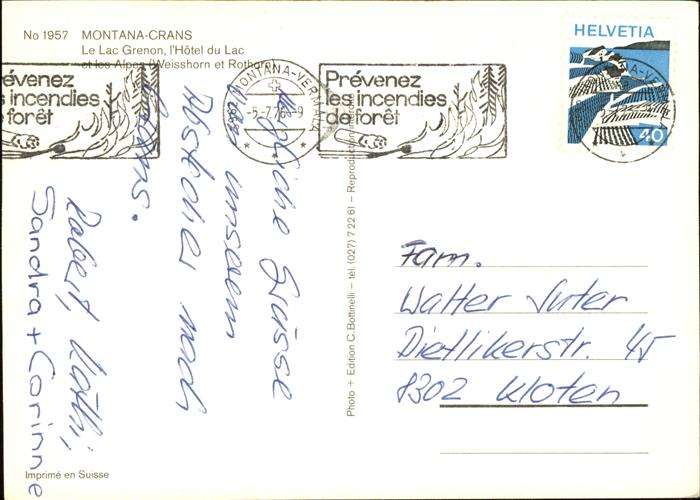 No 1957 MONTANA-CRANS
Le Lac Grenon, l'Hôtel du Lac
et les Alpes (Weisshorn et Rothorn)
évenez
s incendies
forêt
MONTANA-VERMALA
-5-7.76-9
Prévenez
les incendies
de forêt
HELVETIA
40
Grüsse
unserem
Abstecher nach
Crans.
Robert, Käthi,
Sandra + Corinne
Photo + Edition C. Bottinelli – tél. (027) 7 22 61 –
Fam.
Walter Suter
Dietlikerstr. 45
8302 Kloten
Imprimé en Suisse